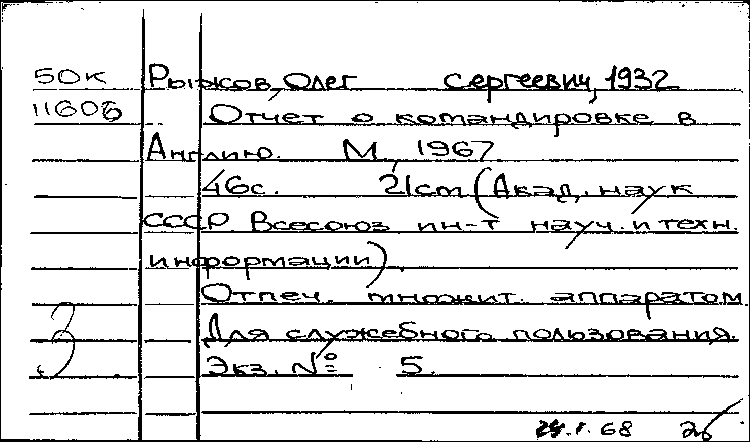 50К Рыжов, Олег Сергеевич, 1932
11606 Отчет о командировке в
Англию. М., 1967
46с. 21см (Акад. наук
СССР. Всесоюз ин-т науч. и техн.
информации).
Отпеч. множит. аппаратом.
Для служебного пользования.
Экз. № 5.
3
1.68